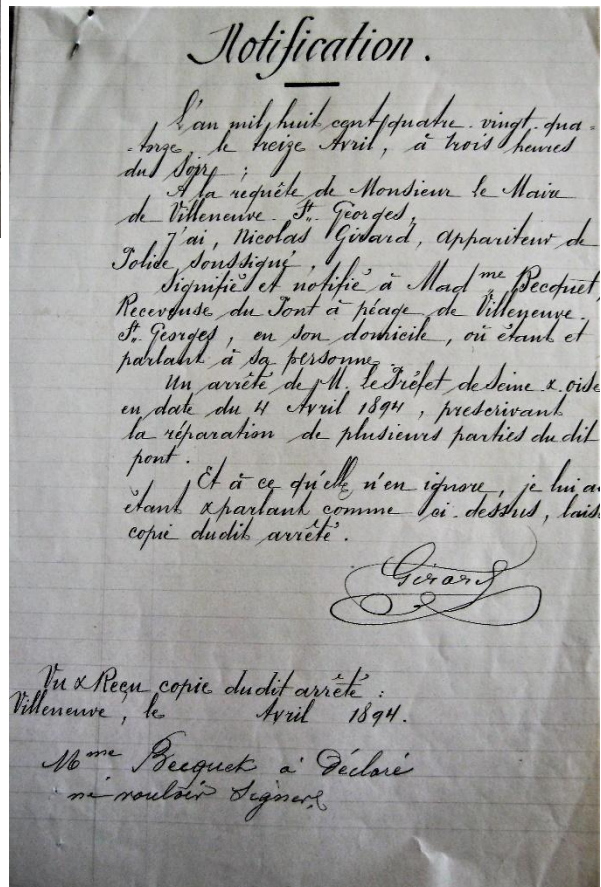 Notification.
L'an mil huit cent quatre-vingt-qua-
-torze, le treize Avril, à trois heures
du Soir ;
A la requête de Monsieur le Maire
de Villeneuve-St-Georges,
J'ai, Nicolas Girard, Appariteur de
Police soussigné,
Signifié et notifié à Mad me Becquet,
Receveuse du Pont à péage de Villeneuve-
St-Georges, en son domicile, où étant et
parlant à sa personne.
Un arrêté de M. le Préfet de Seine & Oise
en date du 4 Avril 1894, prescrivant
la réparation de plusieurs parties du dit
pont.
Et à ce qu'elle n'en ignore, je lui a
étant & parlant comme ci-dessus, laiss
copie dudit arrêté.
Girard
Vu & Reçu copie dudit arrêté :
Villeneuve, le Avril 1894.
Mme Becquet a Déclaré
ne vouloir Signer